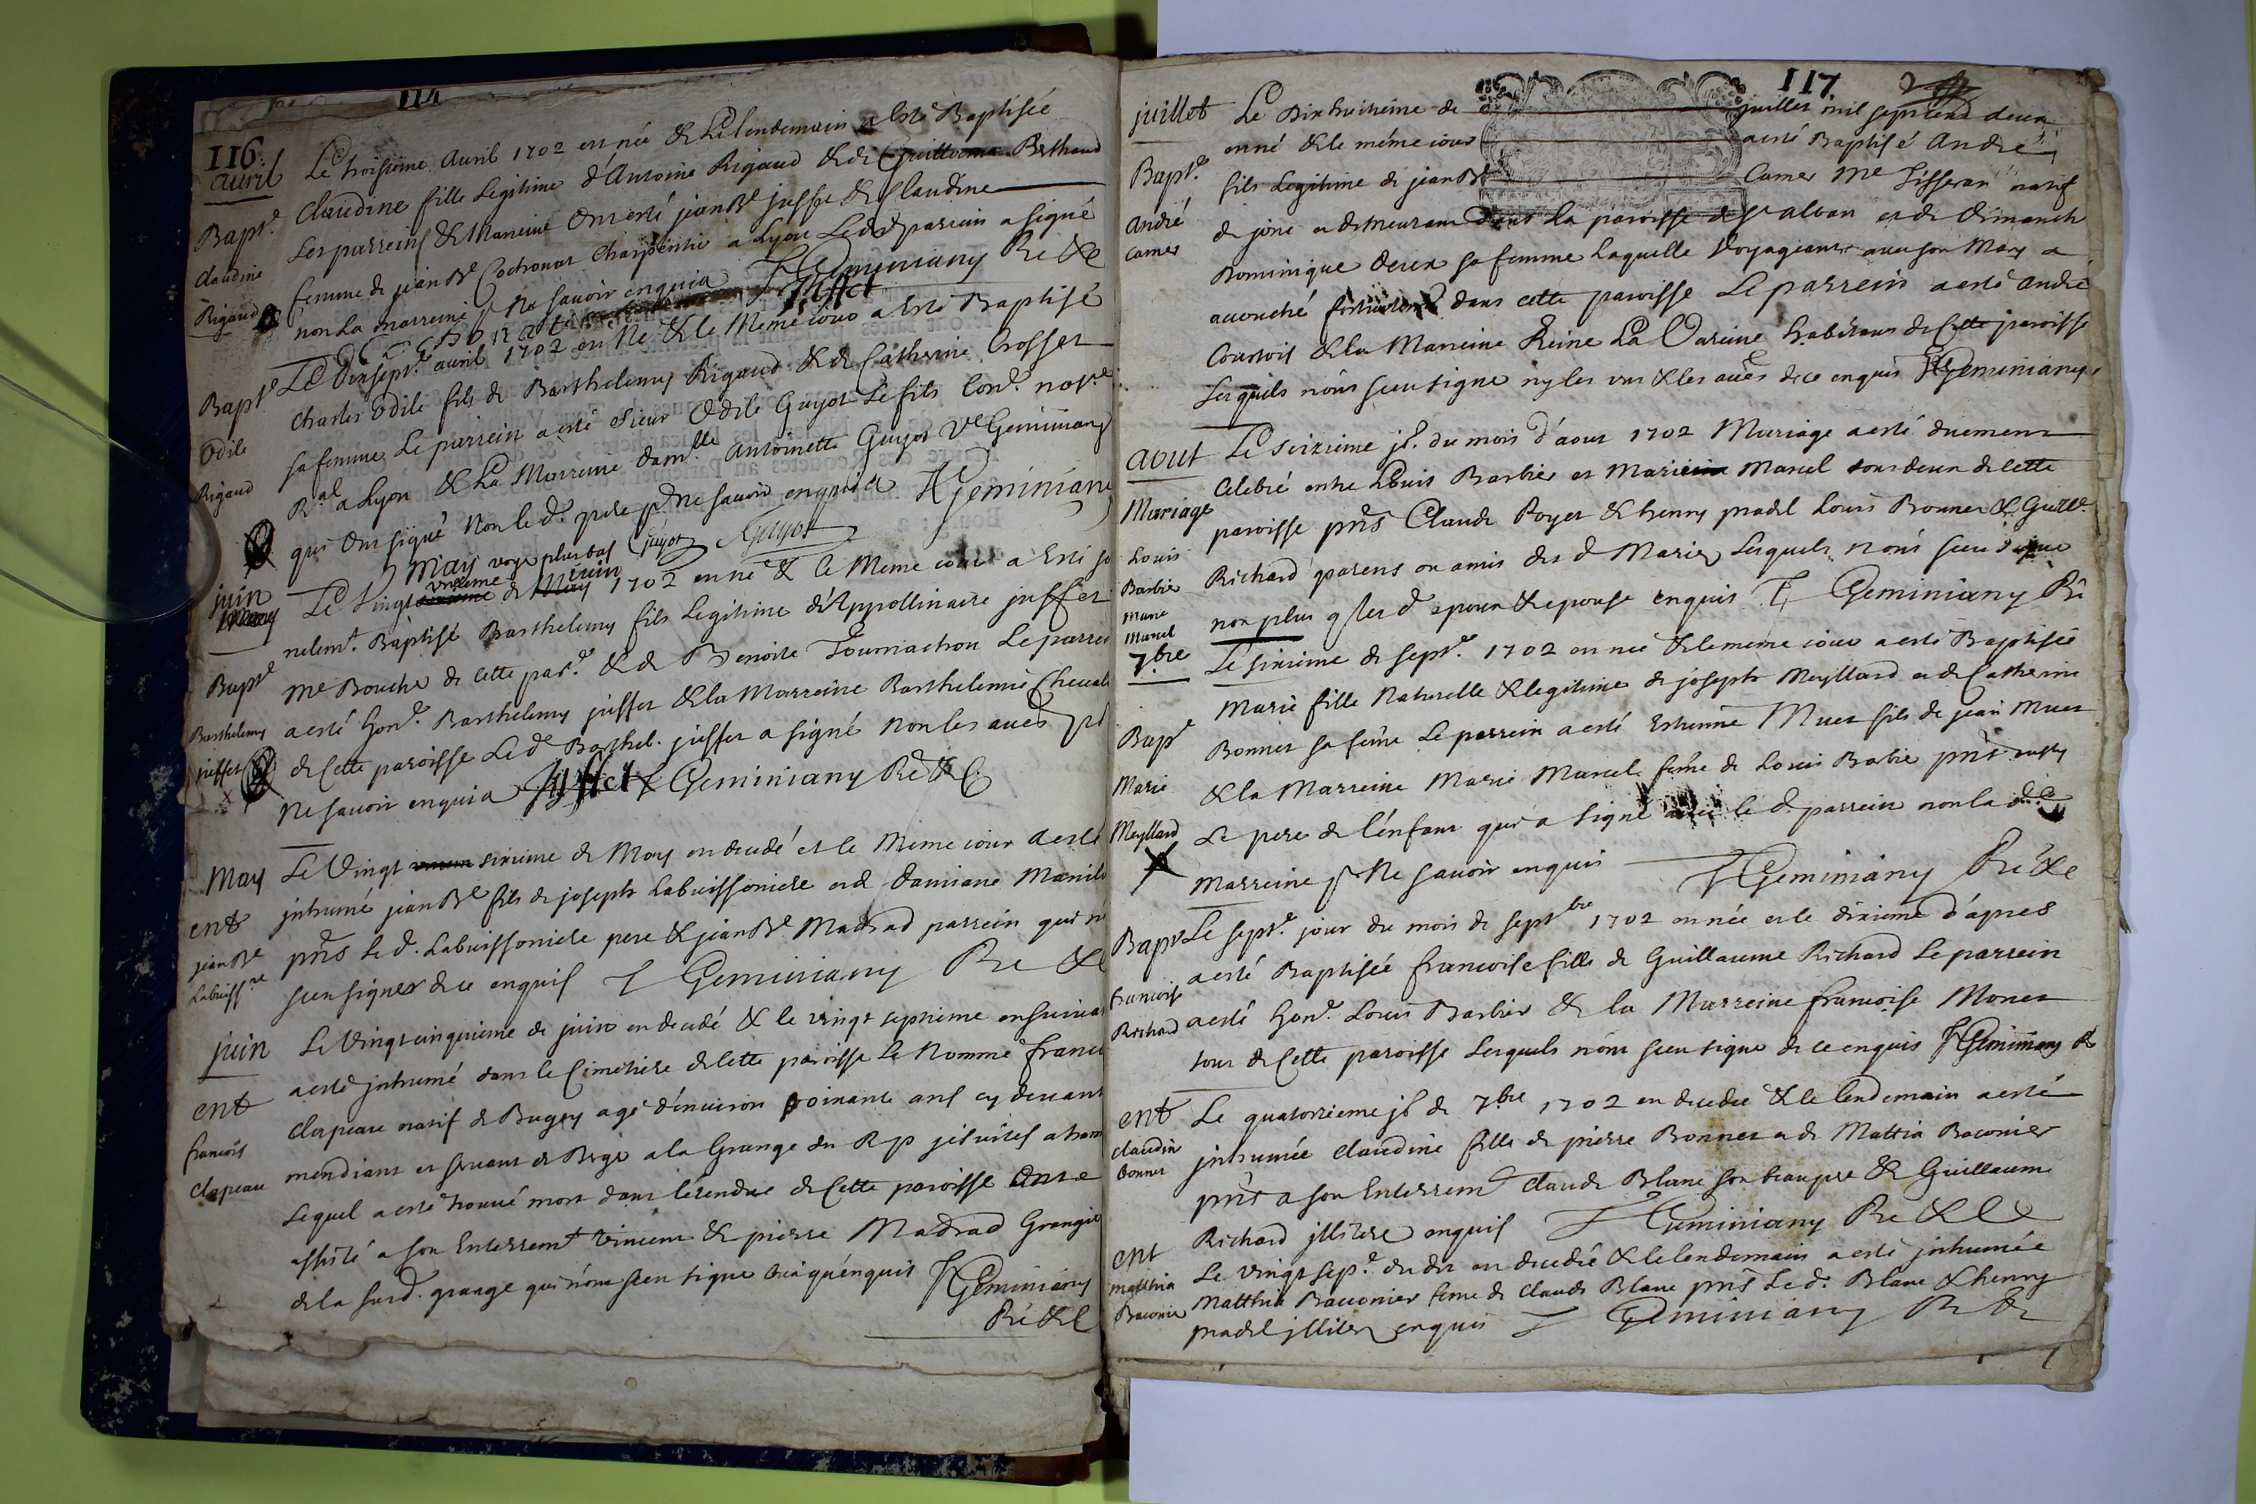 114
116.
avril
Le troisieme Avril 1702 en née & Le lendemain a esté Baptisée
Bapt.e
Claudine fille Legitime d'Antoine Rigaud & de Guillerma Berthaud
claudine
Les parreins & Marreine Ont esté jean Bte juffet & Claudine
Rigaud
femme de jean Bte Cochonat Charpentier a Lyon Led. parrein a signé
non La marreine p Ne savoir enquis F Geminiany Re &c
Juffet
Bapt.e
Le Dixsept.e avril 1702 en Ne & le Meme iour a Esté Baptisé
Odile
Charles Odile fils de Barthelemy Rigaud & de Catherine Crosset
Rigaud
sa femme Le parrein a esté sieur Odile Guyot Le fils Con.r not.re
R.al a Lyon & La Marreine dam.lle Antoinette Guyot Ve Geminiany
qui Ont signé Non le d. pere p Ne savoir enquis F Geminiany
May voye plus bas Guyot Guyot
juin
Le Vingt unieme de juin 1702 en né & le Meme iour a Esté so
Bapt.e
nelem.t Baptisé Barthelemy fils Legitime d'Appollinaire juffet
Barthelemy
me Boucher de cette par.e & de Benoite Tournachon Le parrein
juffet
a esté hon.e Barthelemy juffet & la Marreine Barthelemie Cheval
de Cette paroisse Le de Barthel. juffet a signé Non les aues p
Ne savoir enquis Juffet F Geminiany Re & C
May
Le Vingt sixieme de May en decedé et le Meme iour a esté
ent
inhumé jean Bte fils de joseph Labuissoniere et de Damiane
jean Bte
pñs Le d. Labuissoniere pere & jean Bte Madrad parrein qui n
Labuiss.re
sceu signer de ce enquis F Geminiany Re &c
juin
Le Vingt cinquieme de juin en decedé & le vingt septieme ensuivant
ent
a esté inhumé dans le Cimetiere de Cette paroisse Le Nommé Franc
francois
Clapeau natif de Bugey agé d'environ soixante ans cy devant
Clapeau
mendiant et servant de Berger a la Grange du R p jesuites
Lequel a esté trouvé mort dans l'etendue de Cette paroisse Ont
assisté a son Enterrem.t Vincent & pierre Madrad Granger
de la susd. grange qui n'ont sceu signer enquis F Geminiany
Re & C
117
juillet
Le Dix huitieme de juillet mil sept cent deux
en né & le méme iour a esté Baptisé André
Bapt.e
fils Legitime de jean Bte Camer Me Tisseran natif
André
de jone et demeurant dans La paroisse de St alban et de Dimanche
Camer
Dominique Deux sa femme Laquelle Voyageant avec son Mary a
acouché dans cette paroisse Le parrein a esté André
Courtois & la Marreine Reine La Vareine habitans de Cette paroisse
Lesquels n'ont sceu signe ny les uns & les aues de ce enquis F Geminiany
aout
Le seizieme jr. du mois d'aout 1702 Mariage a esté duement
Celebré entre Louis Barbier et Marie Marcel tous deux de cette
Mariage
paroisse pñs Claude Poyet & henry pradel Louis Bonnet & Guill.e
Louis
Richard parens ou amis des d Mariez Lesquels n'ont sceu signe
Barbier
non plus q les d epoux & epouse enquis F Geminiany Re
marie
marcel
7.bre
Le sixieme de sept.e 1702 en née & le meme iour a esté Baptisée
Marie fille Naturelle & legitime de joseph Meyllard et de Catherine
Bapt
Bonnet sa feme Le parrein a esté Estienne Muet fils de jean Muet
Marie
& la Marreine Marie Marcel feme de Louis Barbie pñt
Meyllard
Le pere de l'enfant qui a signé avec le d. parrein non la d.e
Marreine p Ne savoir enquis F Geminiany Re & C
Bapt
Le sept.e jour du mois de sept.bre 1702 en née et le dixieme d'apres
francoise
a esté Baptisée francoise fille de Guillaume Richard Le parrein
Richard
a esté hon.e Louis Barbier & la Marreine francoise Monet
tous de Cette paroisse Lesquels n'ont sceu signe de ce enquis F Geminiany Re
ent
Le quatorzieme jr de 7.bre 1702 en decedée & le lendemain a esté
claudin
inhumée Claudine fille de pierre Bonnet et de Mattia Baconier
Bonnet
pñs a son Enterrem.t Claude Blanc son beaupere & Guillaume
Richard illitere enquis F Geminiany Re & C
ent
Le Vingt sep.e du dit en decedée & le lendemain a esté inhumée
matthia
Matthia Baconier feme de Claude Blanc pñs Le d. Blanc & henry
Baconier
pradel illiter enquis F Geminiany Re &c